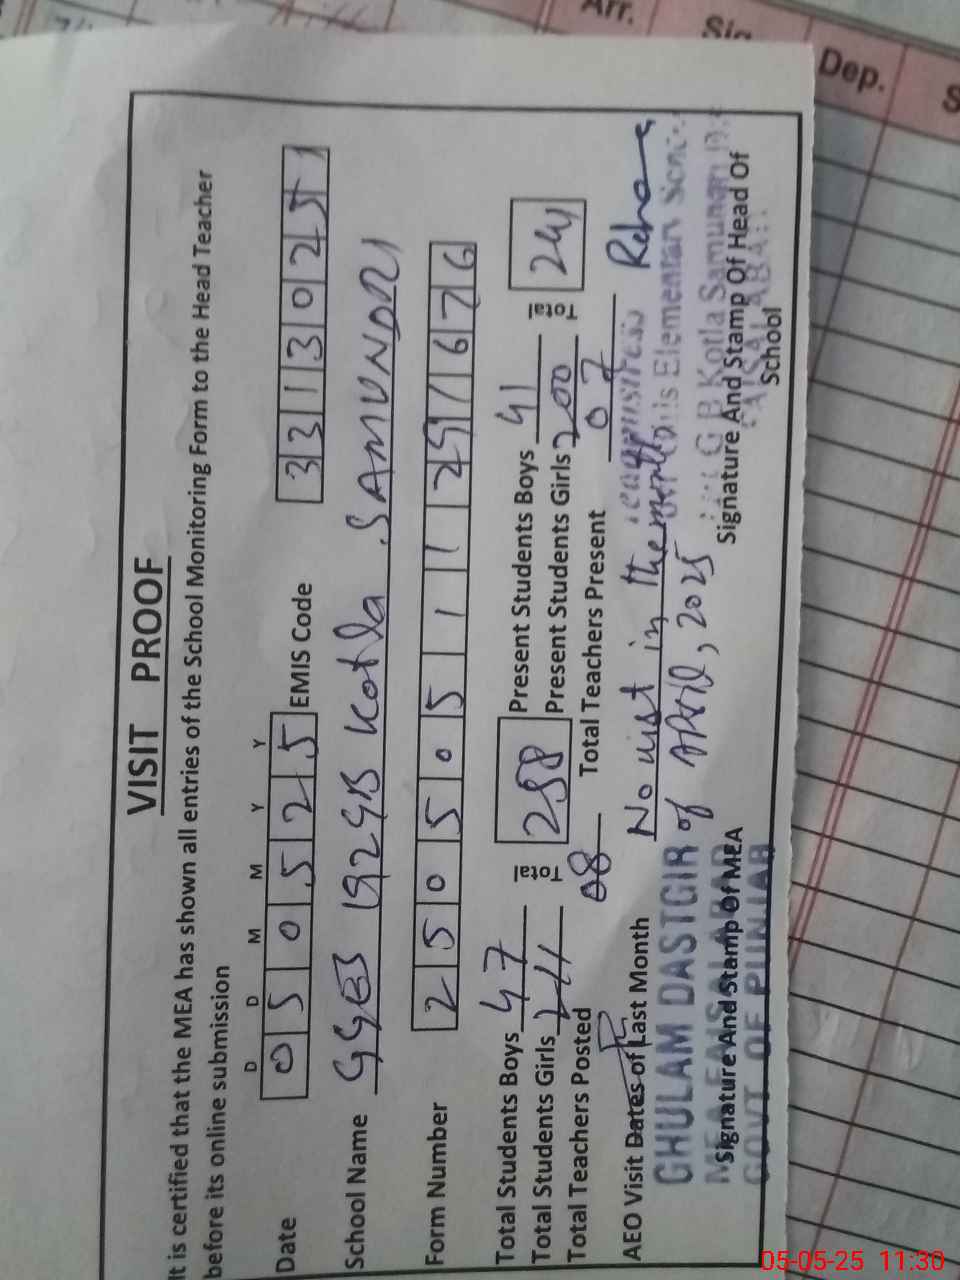 Arr.
Dep.
VISIT PROOF
It is certified that the MEA has shown all entries of the School Monitoring Form to the Head Teacher
before its online submission
D D M M Y Y
Date 0 5 0 5 2 5 EMIS Code 3 3 1 3 0 2 5 1
School Name GGES 192GB Kotla SAMUNDRI
Form Number 2 5 0 5 0 5 1 1 2 9 1 6 7 6
Total Students Boys 47 Total 258 Present Students Boys 41 Total 241
Total Students Girls 211 Present Students Girls 200
Total Teachers Posted 08 Total Teachers Present 07
AEO Visit Dates of Last Month No visit in the month
of APRIL, 2025
GHULAM DASTGIR
MEA FAISALABAD
GOVT OF PUNJAB
Signature And Stamp Of MEA
Elementary
GB Kotla Samundri
FAISALABAD
Signature And Stamp Of Head Of
School
05-05-25 11:30